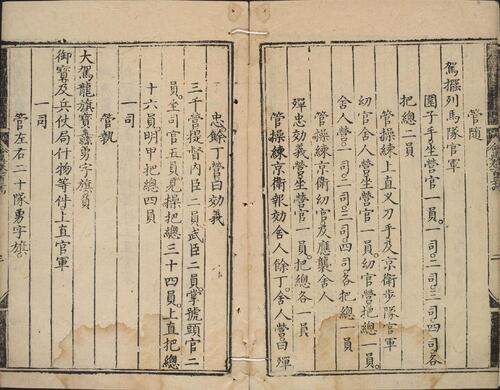 管隨
駕擺列馬隊官軍
圍子手坐營官一員一司二司三司四司各
把總二員
管操練上直叉刀手及京衛步隊官軍
幼官舍人營坐營官一員幼官營把總一員
舍人營一司二司三司四司各把總一員
管操練京衛幼官及應襲舍人
殫忠効義營坐營官一員把總各一員
管操練京衛報効舍人餘丁舍人營曰殫
忠餘丁營曰効義
三千營提督內臣二員武臣二員掌號頭官二
員坐司官五員見操把總三十四員上直把總
十六員明甲把總四員
一司
管執
大駕龍旗寶纛勇字旗負
御寶及兵仗局什物等件上直官軍
一司
管左右二十隊勇字旗